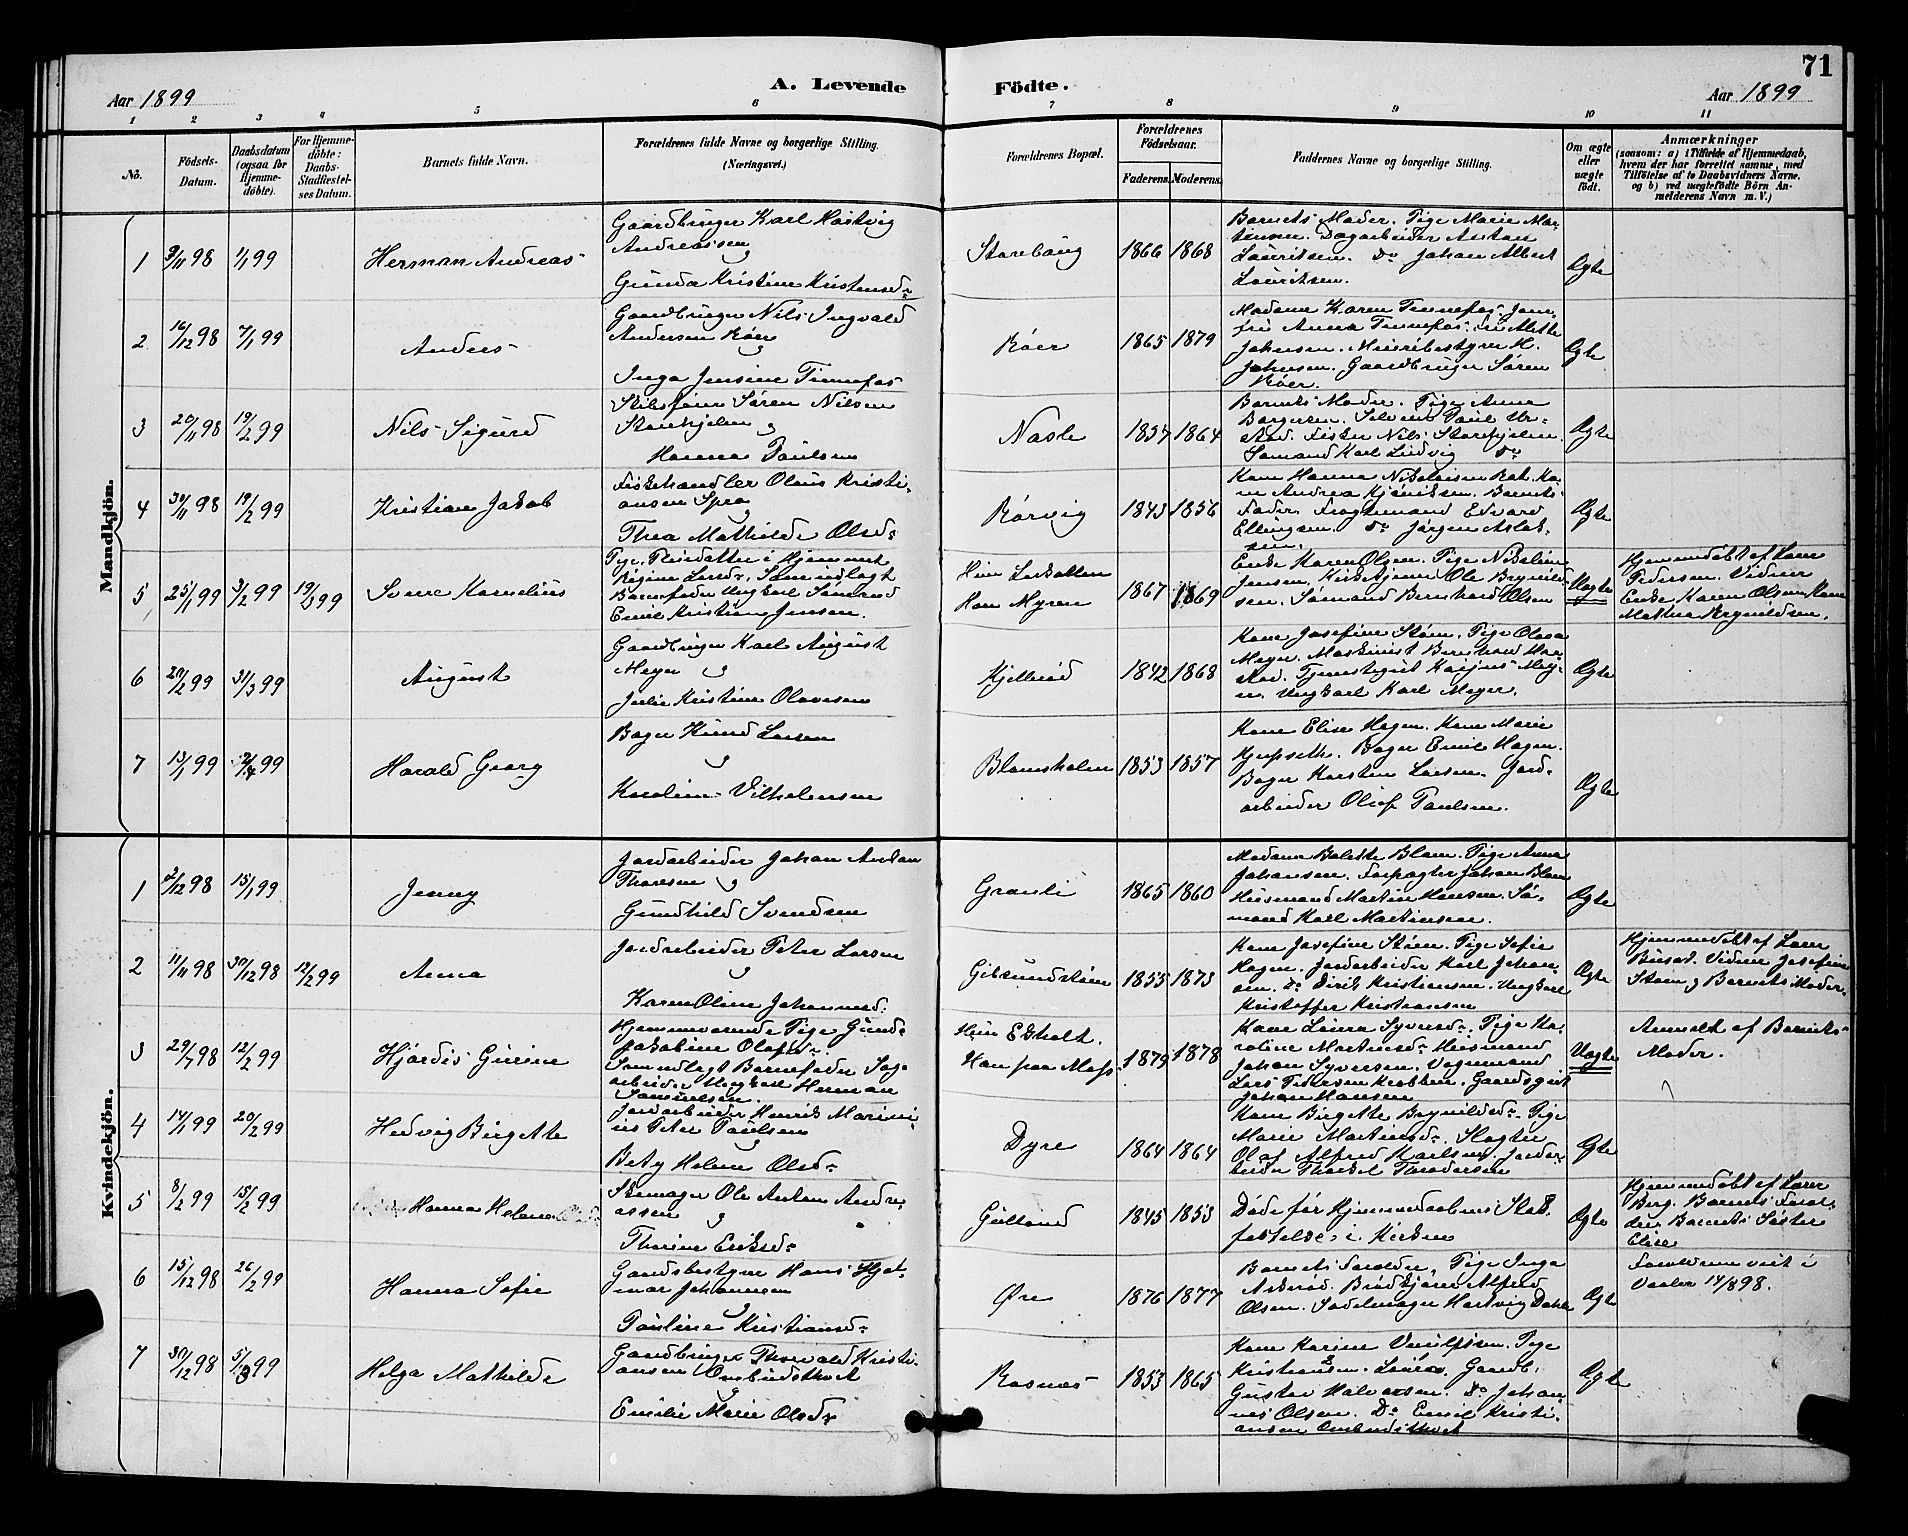 71
Aar 1899
A. Levende
Födte.
Aar 1899
1 2 3 4 5 6 7 8 9 10 11
No.
Födsels-
Datum.
Daabsdatum
(ogsaa for
Hjemme-
döbte).
For Hjemme-
döbte:
Daabs-
Stadfæstel-
ses Datum.
Barnets fulde Navn.
Forældrenes fulde Navne og borgerlige Stilling.
(Næringsvei.)
Forældrenes Bopæl.
Forældrenes
Födselsaar.
Faderens.
Moderens.
Faddernes Navne og borgerlige Stilling.
Om ægte
eller
uægte
födt.
Anmærkninger
(saasom: a) i Tilfælde af Hjemmedaab,
hvem der har forrettet samme, med
Tilföielse af to Daabsvidners Navne,
og b) ved uægtefödte Börn An-
melderens Navn m. V.)
Mandkjön.
1
9/11 98
1/1 99
Herman Andreas
Gaardbruger Karl Hartvig
Andreassen
og
Gunda Kristine Kristensdr
Storebaug
1866
1868
Barnets Moder. Pige Marie Mar-
tinsen. Dagarbeider Anton
Lauritsen. Do Johan Albert
Lauritsen.
Ægte
2
16/12 98
7/1 99
Anders
Gaardbruger Nils Ingvald
Andersen Röer
Inga Jensine Tinnefos
Röer
1865
1879
Madame Karen Tinnefos. Jom-
fru Anna Tinnefos. Mette
Johnsen. Meieribestyrer H.
Johnsen. Gaardbruger Sören
Röer.
Ægte
3
20/11 98
19/2 99
Nils Sigurd
Skibsförer Sören Nilsen
Storehjelm
og
Hanna Paulsen
Nasle
1857
1864
Barnets Moder. Pige Anne
Borgersen. Paul
Fisker Nils Storehjelm.
Sömand Karl Ludvig do
Ægte
4
30/11 98
19/2 99
Kristian Jakob
Fiskehandler Olaus Kristi-
ansen
og
Thea Mathilde Olsdr
Rörvig
1843
1856
Kone Hanna Nikolaisen
Andrea Barnets
Fader. Edvard
Ellingsen. do Jörgen Aslak-
sen.
Ægte
5
25/1 99
3/2 99
19/3 99
Sverre Kornelius
Pige, Pleiedatter i Hjemmet
Regine Larsdr. Som udlagt
Barnefader Ungkarl Sömand
Emil Kristian Jensen.
Hun Larkollen
Han Myren
1867
1869
Enke Karen Olsen. Pige Nikoline
Jensen. Kirketjener Ole Brynild-
sen. Sömand Bernhard Olsen
Uægte
Hjemmedöbt af Lærer
Pedersen. Vidner
Enke Karen Olsen, Kone
Mathea Brynildsen.
6
20/2 99
31/3 99
August
Gaardbruger Karl August
Meyer
og
Julie Kristine Olavesen
Kjelleröd
1842
1868
Kone Josefine Steen. Pige Olava
Meyer. Maskinist Bernhard Har-
stad. Tjenestegut Mey-
er. Ungkarl Karl Meyer.
Ægte
7
13/1 99
2/4 99
Harald Georg
Bager Knud Larsen
og
Karoline Vilhelmsen
Blomsholm
1853
1857
Kone Elise Hagen. Kone Marie
Bager Emil Hagen.
Bager Karsten Larsen. Jord-
arbeider Olaf Paulsen.
Ægte
Kvindekjön.
1
2/12 98
15/1 99
Jenny
Jordarbeider Johan Anton
Thoresen
og
Gunhild Svendsen
Granli
1865
1860
Madame Bolette Blom. Pige Anna
Johansen. Forpagter Johan Blom
Husmand Martin Hansen. Sö-
mand Karl Martinsen.
Ægte
2
11/11 98
30/12 98
12/2 99
Anna
Jordarbeider Peter Larsen
og
Karen Oline Johannesd.
Gibsundröen
1855
1873
Kone Josefine Steen. Pige Sofie
Hagen. Jordarbeider Karl Johan-
sen. do Dirik Kristiansen. Ungkarl
Kristoffer Kristiansen
Ægte
Hjemmedöbt af Lærer
Vidner Josefine
Steen og Barnets Moder.
3
29/7 98
12/2 99
Hjördis Gurine
Hjemmeværende Pige Gunda
Jakobine Olafsdr.
Som udlagt Barnefader Sag-
arbeider Ungkarl Herman
Samuelsen.
Hun Ekholt.
Han paa Moss
1879
1878
Kone Laura Syversdr. Pige Ka-
roline Martinsdr Husmand
Johan Syversen. Vognmand
Lars Pettersen Krokken. Gaardsgut
Johan Hansen
Uægte
Anmeldt af Barnets
Moder.
4
14/1 99
20/2 99
Hedvig Birgette
Jordarbeider Henrik Marini-
us Peter Paulsen
og
Bety Helene Olsdr
Dyre
1864
1864
Kone Birgitte Brynildsdr. Pige
Marie Martinsdr. Slagter
Olaf Alfred Karlsen. Jordar-
beider Thorkel Theodorsen
Ægte
5
8/2 99
15/2 99
Hanna Helene
Skomager Ole Anton Andre-
assen
og
Thorine Eriksdr
Gulland
1845
1853
Döde för Hjemmedaabens Stad-
festelse i Kirken
Ægte
Hjemmedöbt af Lærer
Berg. Barnets Foræl-
dre. Barnets Söster
Elise
6
15/12 98
26/2 99
Hanna Sofie
Gaardsbestyrer Hans Hjal-
mar Johannesen
og
Pauline Kristiansdr
Øre
1876
1877
Barnets Forældre, Pige Inga
Askeröd. Brödkjörer Alfred
Olsen. Sadelmager Hartvig Dahl
Ægte
Forældrene viet i
Vaaler 14/8 98.
7
30/12 98
5/3 99
Helga Mathilde
Gaardbruger Thorvald Kristi-
ansen Ombudstvet
og
Emilie Marie Olsdr
Rosnes
1853
1865
Kone Karine Pige
Kristiansen. Gaardb.
Gustav Halvorsen. Do Johan-
nes Olsen. Do Emil Kristi-
ansen Ombudstvet
Ægte